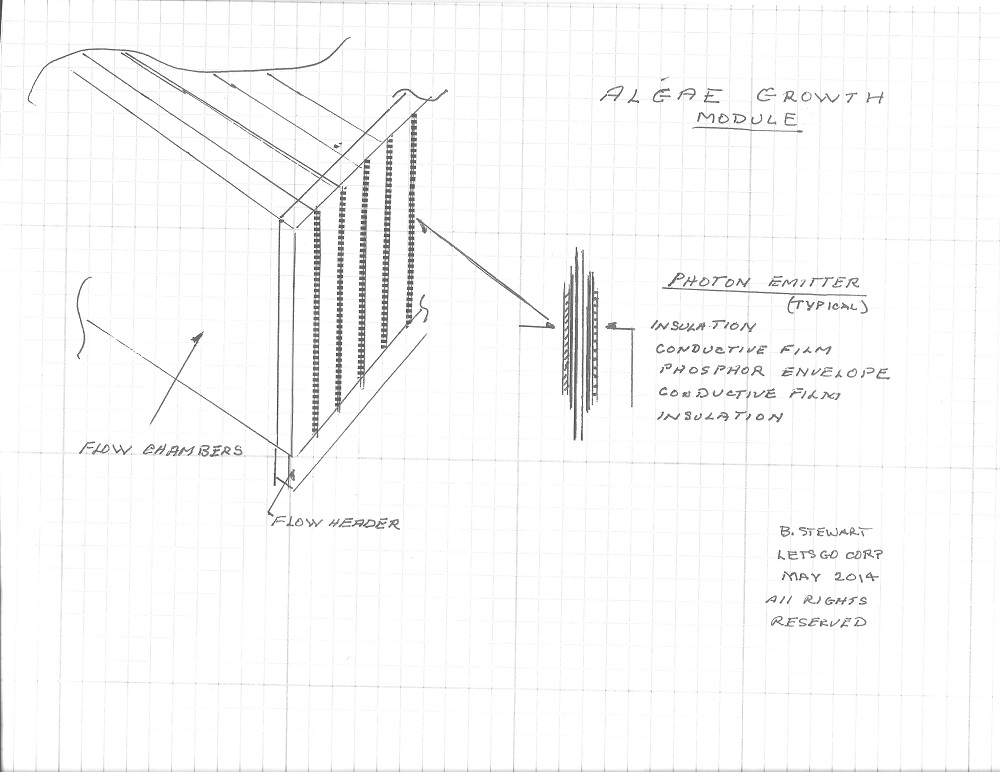 ALGAE GROWTH
MODULE
PHOTON EMITTER
(TYPICAL)
INSULATION
CONDUCTIVE FILM
PHOSPHOR ENVELOPE
CONDUCTIVE FILM
INSULATION
FLOW CHAMBERS
FLOW HEADER
B. STEWART
LETSGO CORP
MAY 2014
All RIGHTS
RESERVED